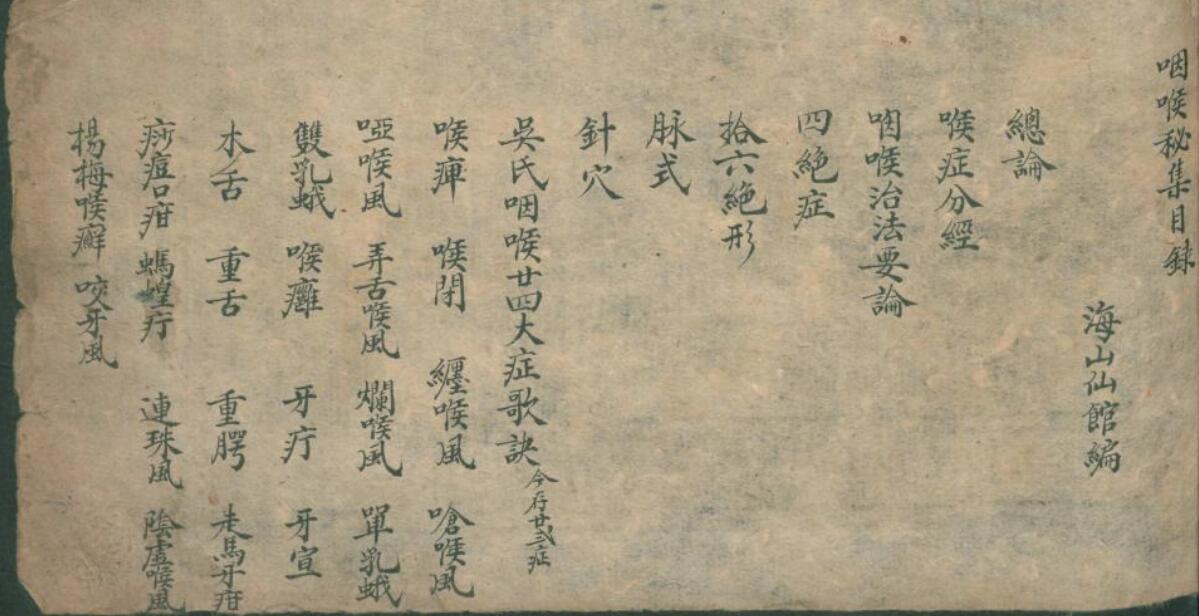 咽喉秘集目錄
海山仙館編
總論
喉症分經
咽喉治法要論
四絕症
拾六絕形
脉式
針穴
吳氏咽喉廿四大症歌訣 今存廿弍症
喉痺 喉閉 纏喉風 嗆喉風
啞喉風 弄舌喉風 爛喉風 單乳蛾
雙乳蛾 喉癰 牙疔 牙宣
木舌 重舌 重腭 走馬牙疳
痧痘口疳 螞蝗疔 連珠風 陰虛喉風
楊梅喉癬 咬牙風